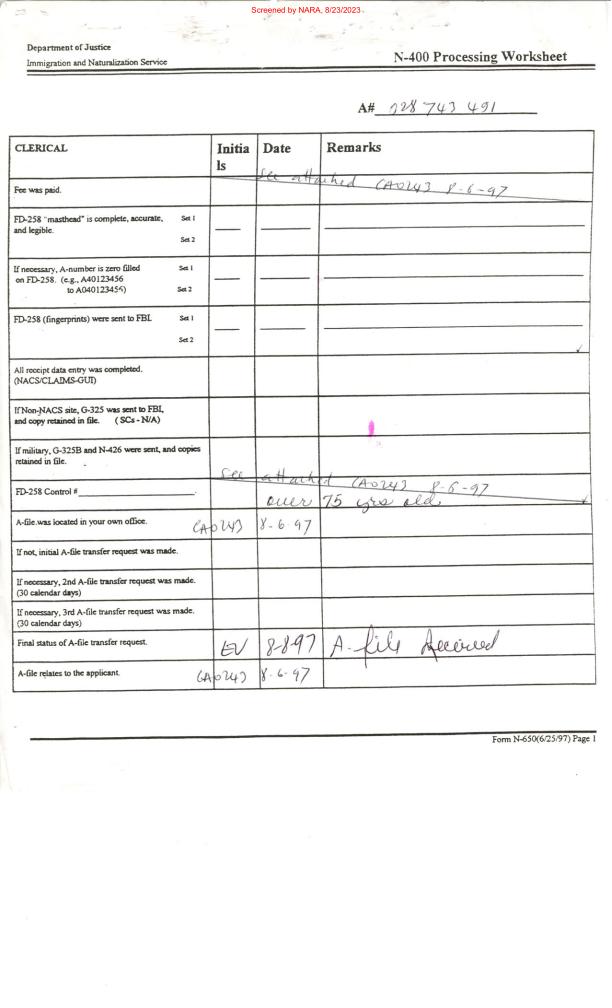 Screened by NARA, 8/23/2023
Department of Justice
Immigration and Naturalization Service
N-400 Processing Worksheet
A# 028 743 491
CLERICAL Initia ls Date Remarks
See attached CA0243 8-6-97
Fee was paid.
FD-258 "masthead" is complete, accurate, and legible. Set 1
Set 2
If necessary, A-number is zero filled on FD-258. (e.g., A40123456 to A040123456) Set 1
Set 2
FD-258 (fingerprints) were sent to FBI. Set 1
Set 2
All receipt data entry was completed.
(NACS/CLAIMS-GUI)
If Non-NACS site, G-325 was sent to FBI,
and copy retained in file. (SCs - N/A)
If military, G-325B and N-426 were sent, and copies
retained in file.
See attached CA0243 8-6-97
FD-258 Control #
over 75 yrs old.
A-file was located in your own office. CA0243 8-6-97
If not, initial A-file transfer request was made.
If necessary, 2nd A-file transfer request was made.
(30 calendar days)
If necessary, 3rd A-file transfer request was made.
(30 calendar days)
Final status of A-file transfer request. EV 8-8-97 A-file Received
A-file relates to the applicant. CA0243 8-6-97
Form N-650(6/25/97) Page 1